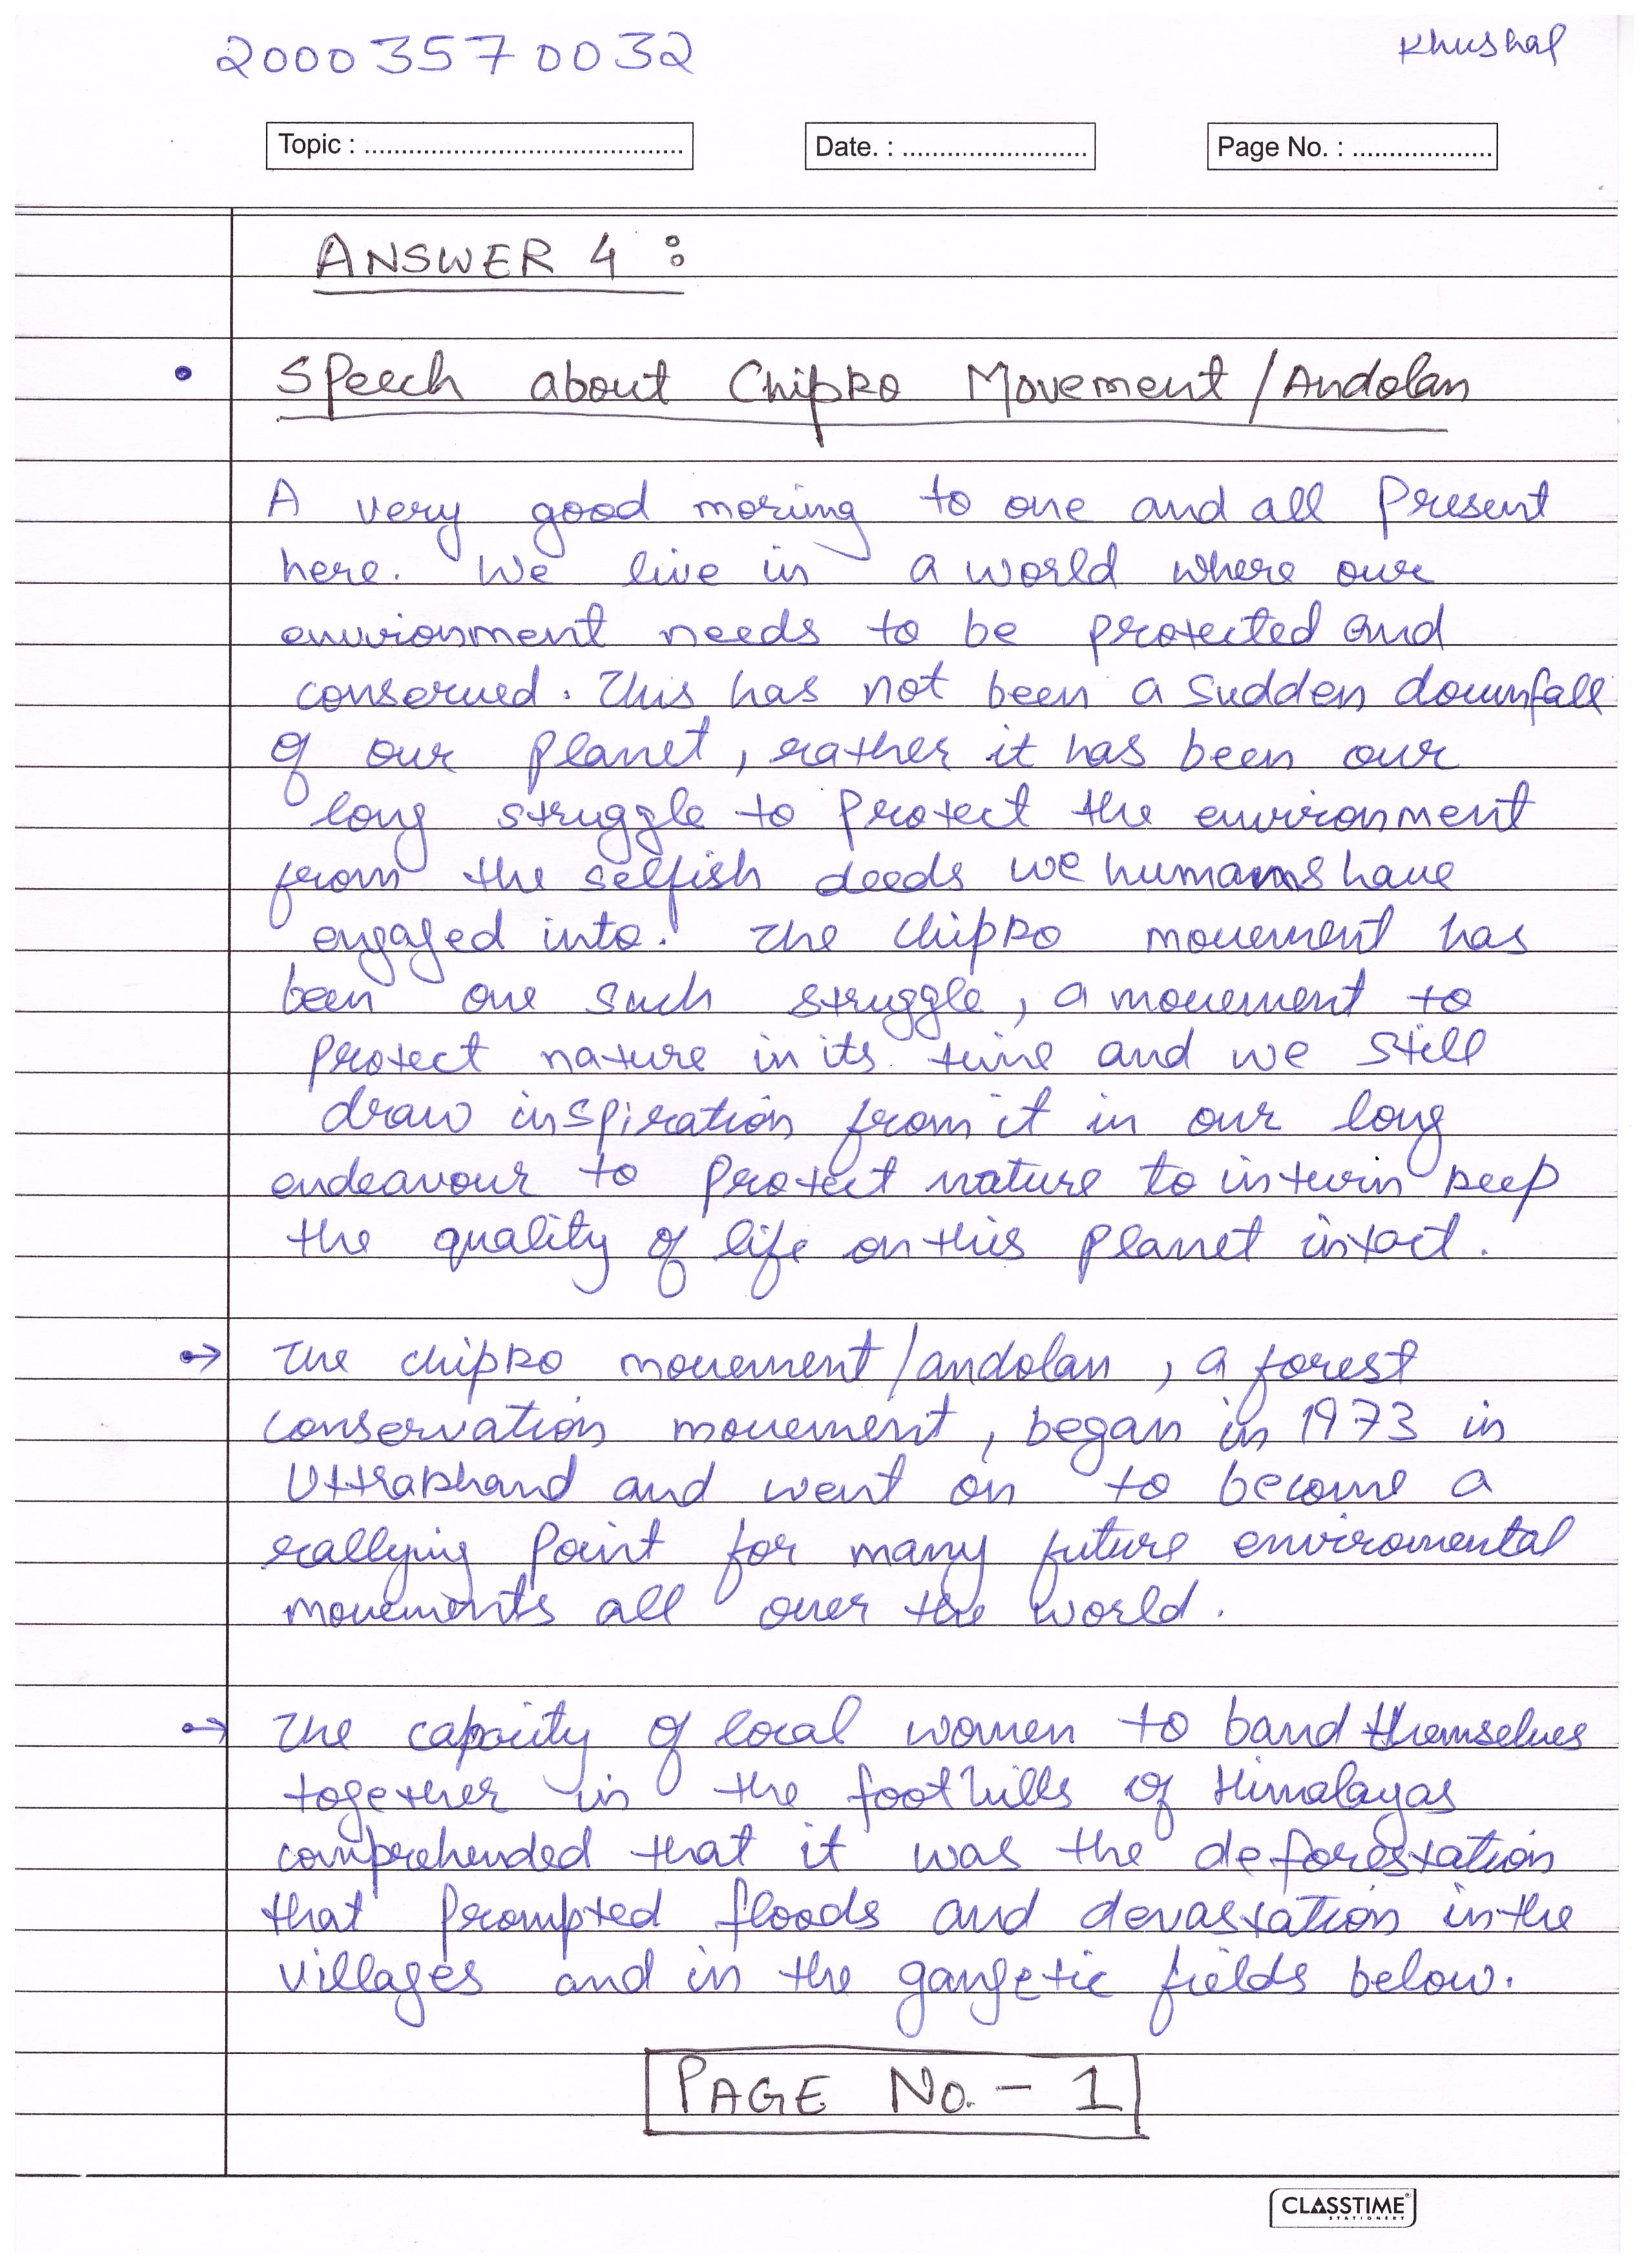 20003570032
Khushal
Topic : ............................................
Date. : .........................
Page No. : ...................
ANSWER 4 :
• Speech about Chipko Movement/Andolan
A very good moring to one and all Present
here. We live in a world where our
environment needs to be protected and
conserved. This has not been a sudden downfall
of our planet, rather it has been our
long struggle to protect the environment
from the selfish deeds we humans have
engaged into. The Chipko movement has
been one such struggle, a movement to
protect nature in its time and we still
draw inspiration from it in our long
endeavour to protect nature to inturn keep
the quality of life on this planet intact.
→ The chipko movement/andolan, a forest
conservation movement, began in 1973 in
Uttrakhand and went on to become a
rallying point for many future enviromental
movements all over the world.
→ The capacity of local women to band themselves
together in the foothills of Himalayas
comprehended that it was the deforestation
that prompted floods and devastation in the
villages and in the gangetic fields below.
PAGE No. - 1
CLASSTIME
STATIONERY